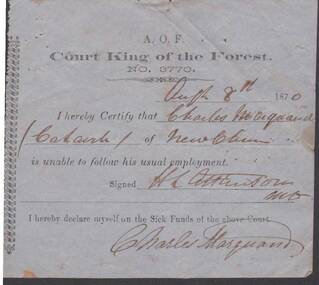 A. O. F.
Court King of the Forest.
NO. 3770.
Augt 8th 1870
I hereby Certify that Charles Marquand
(Catarrh) of New Chum
is unable to follow his usual employment.
Signed H L Atkinson
I hereby declare myself on the Sick Funds of the above Court.
Charles Marquand